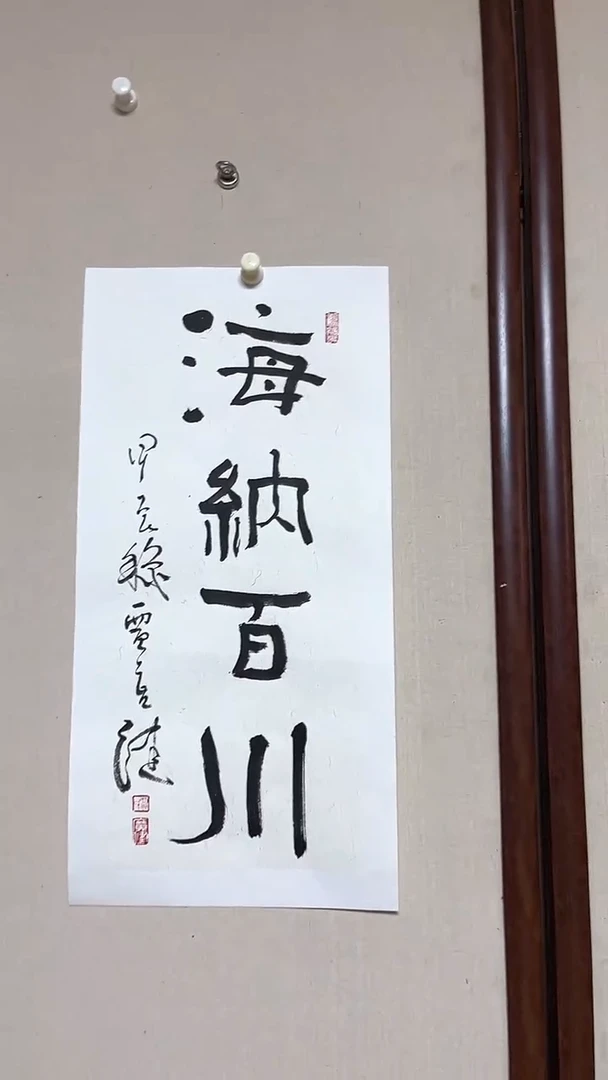 海納百川
甲辰秋